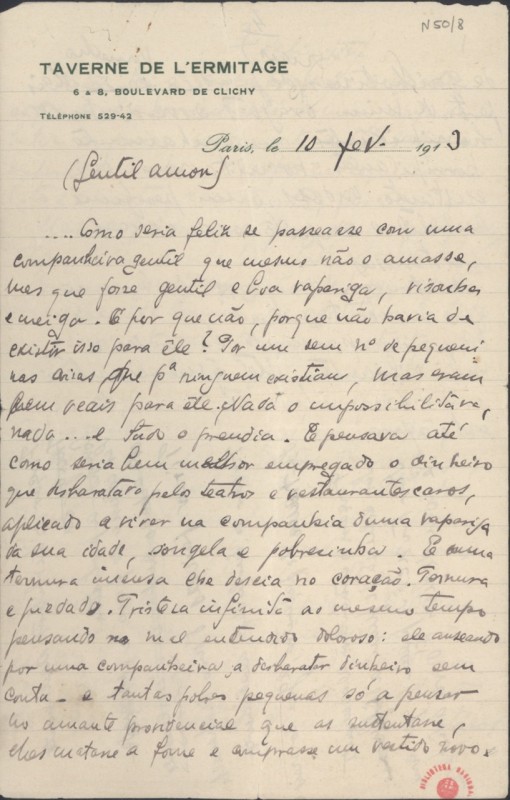 N50/8
TAVERNE DE L'ERMITAGE
6 & 8, BOULEVARD DE CLICHY
TÉLÉPHONE 529-42
Paris, le 10 fev. 1913
(Gentil amor)
....Como seria feliz se passeasse com uma
companheira gentil que mesmo não o amasse,
mas que fosse gentil e boa rapariga, risonha
e meiga. E por que não, porque não havia de
existir isso para êle? Por um sem nº de pequeni
nas coisas que pª ninguem existiam, mas eram
bem reais para ele. Nada o impossibilitava,
nada... e tudo o prendia. E pensava até
como seria bem melhor empregado o dinheiro
que desbaratava pelos teatros e restaurantes caros,
aplicado a viver na companhia duma rapariga
da sua idade, singela e pobresinha. E uma
ternura imensa lhe descia no coração. Ternura
e piedade. Tristeza infinita ao mesmo tempo
pensando no mal entendido doloroso: ele anseando
por uma companheira, a desbaratar dinheiro sem
conta - e tantas pobres pequenas só a pensar
no amante providencial que as sustentasse,
lhes matasse a fome e comprasse um vestido novo.
BIBLIOTECA NACIONAL